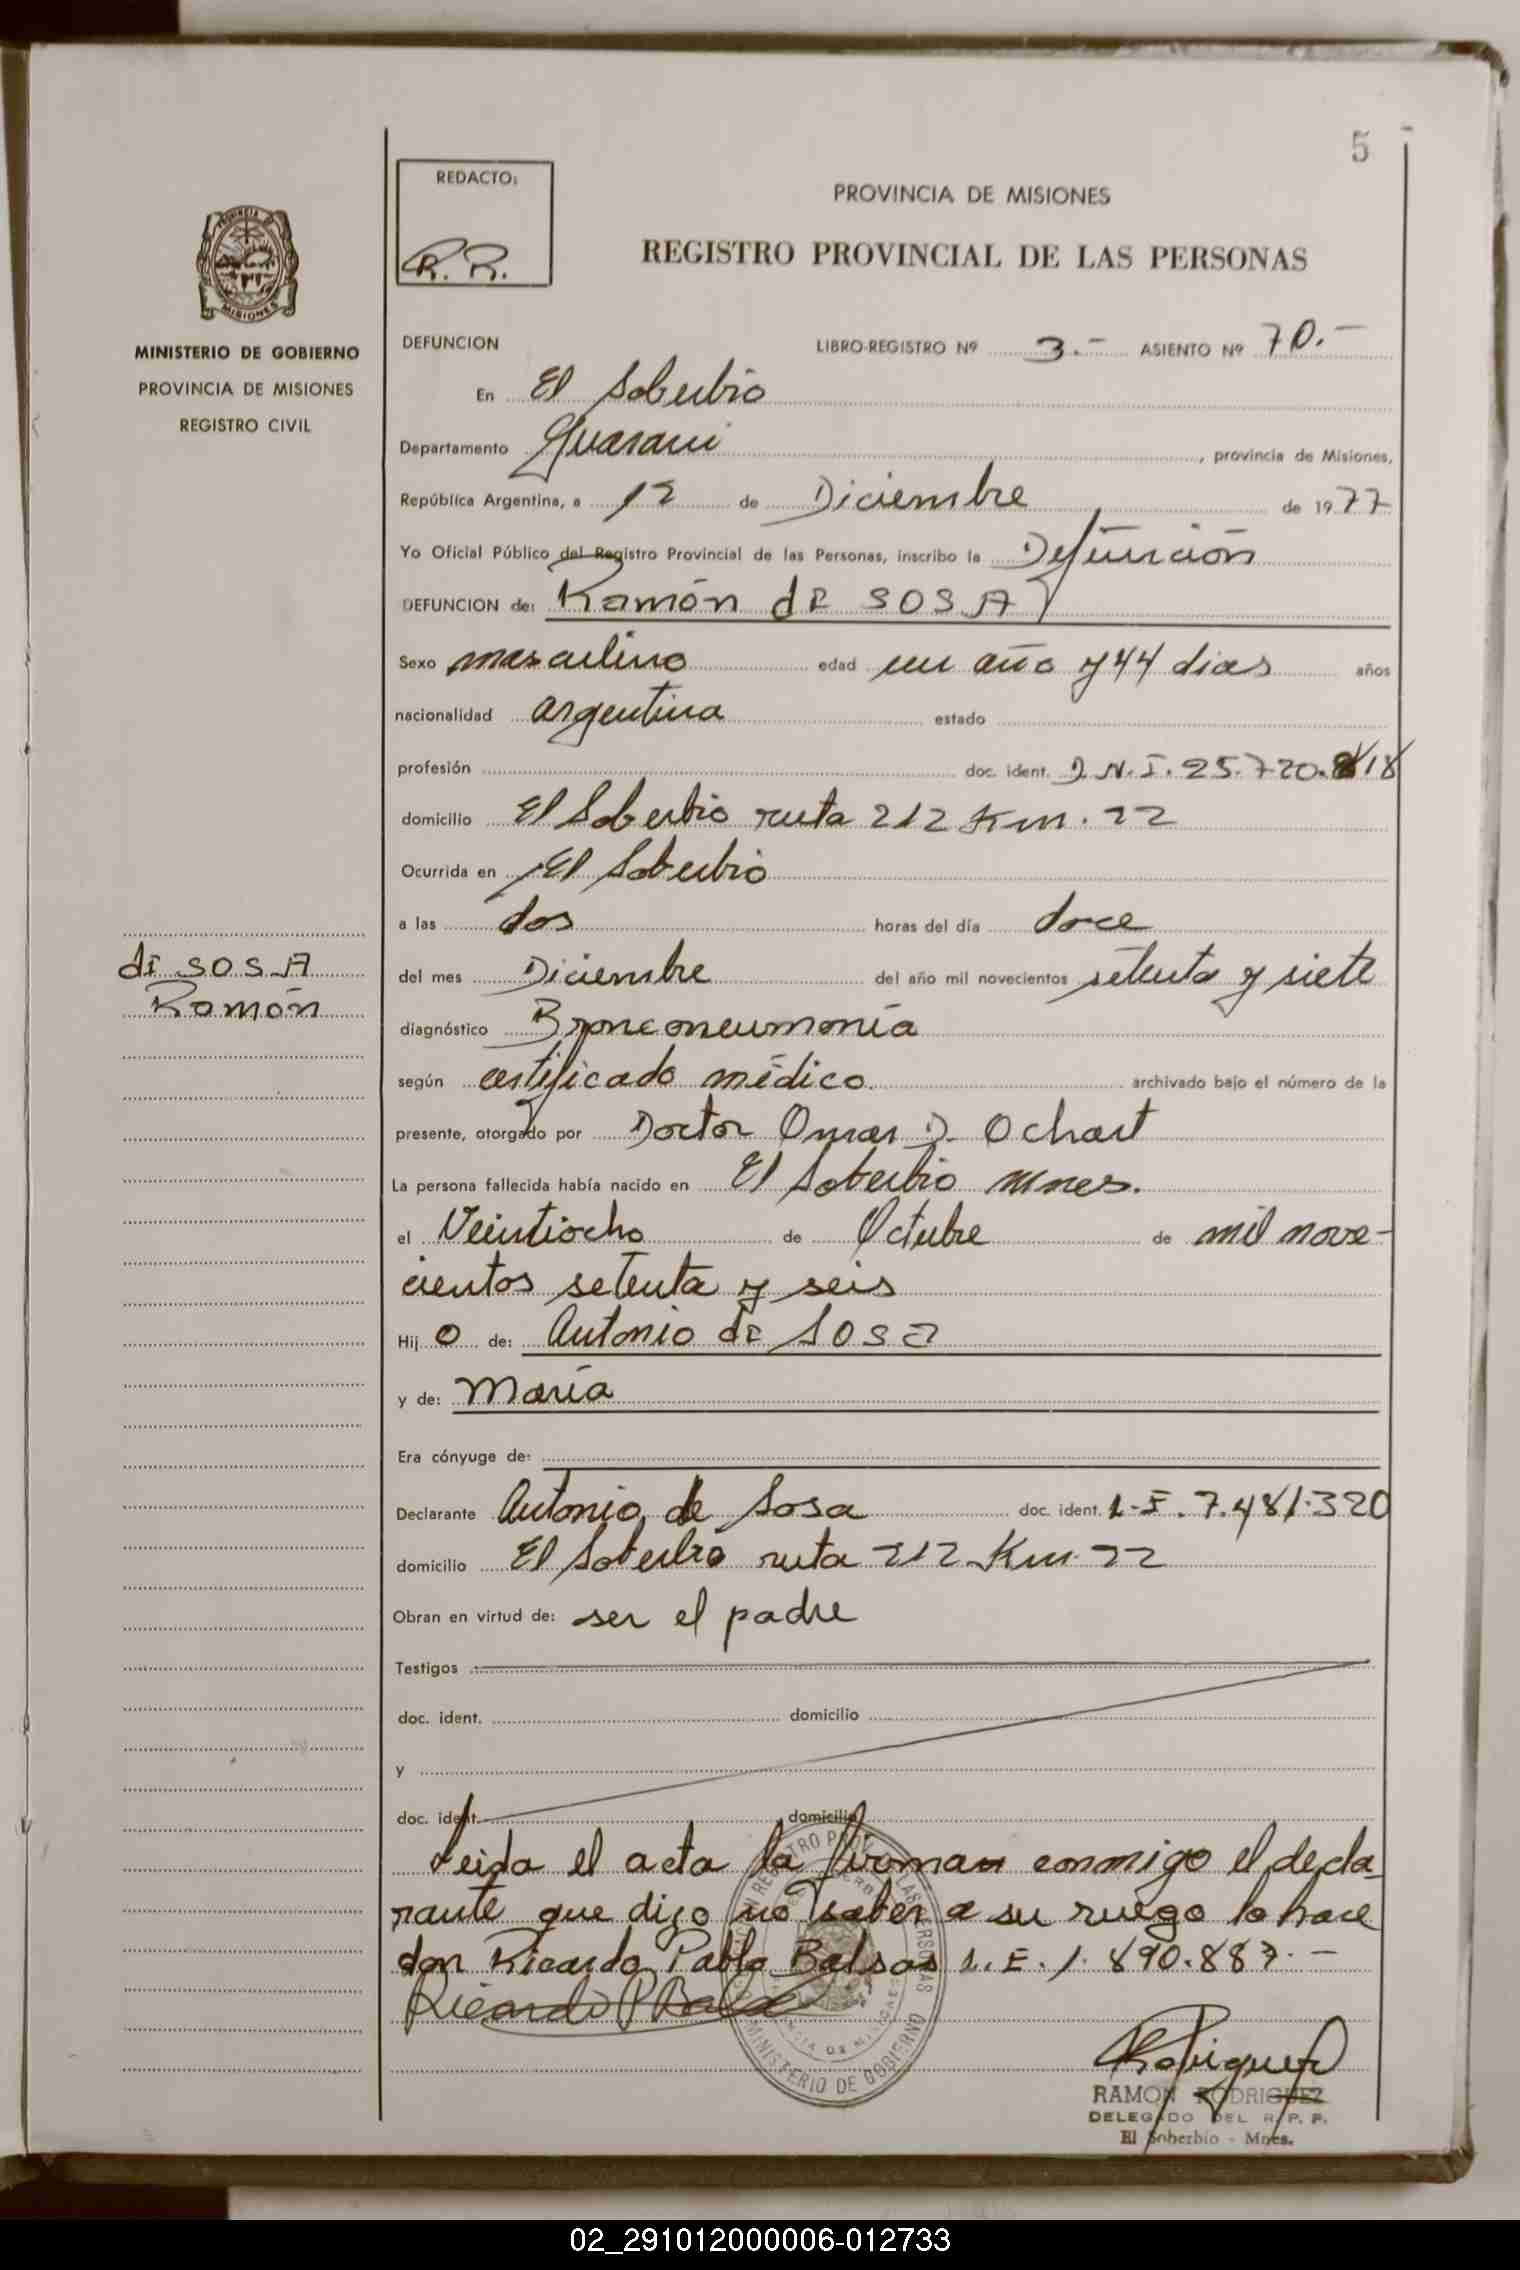 5
REDACTO:
R. R.
PROVINCIA DE MISIONES
REGISTRO PROVINCIAL DE LAS PERSONAS
MISIONES
MINISTERIO DE GOBIERNO
PROVINCIA DE MISIONES
REGISTRO CIVIL
DEFUNCION LIBRO-REGISTRO Nº 3.- ASIENTO Nº 70.-
En El Soberbio
Departamento Guarani, provincia de Misiones,
República Argentina, a 12 de Diciembre de 1977
Yo Oficial Público del Registro Provincial de las Personas, inscribo la Defunción
DEFUNCION de: Ramón de SOSA
Sexo masculino edad un año y 44 dias años
nacionalidad argentina estado
profesión doc. ident. D.N.I. 25.720.818
domicilio El Soberbio ruta 212 Km. 22
Ocurrida en El Soberbio
a las dos horas del día doce
de SOSA
Ramón
del mes Diciembre del año mil novecientos setenta y siete
diagnóstico Bronconeumonía
según certificado médico archivado bajo el número de la
presente, otorgado por Doctor Omar D. Ochart
La persona fallecida había nacido en El Soberbio Mnes.
el Veintiocho de Octubre de mil nove-
cientos setenta y seis
Hijo de: Antonio de Sosa
y de: María
Era cónyuge de:
Declarante Antonio de Sosa doc. ident. L.E. 7.481.320
domicilio El Soberbio ruta 212 Km. 22
Obran en virtud de: ser el padre
Testigos
doc. ident. domicilio
y
doc. ident. domicilio
Leida el acta la firman conmigo el decla-
rante que dijo no saber a su ruego lo hace
don Ricardo Pablo Balsas L.E. 1.890.887.-
Ricardo P
MINISTERIO DE GOBIERNO
Rodriguez
RAMON RODRIGUEZ
DELEGADO DEL R. P. P.
El Soberbio - Mnes.
02_291012000006-012733